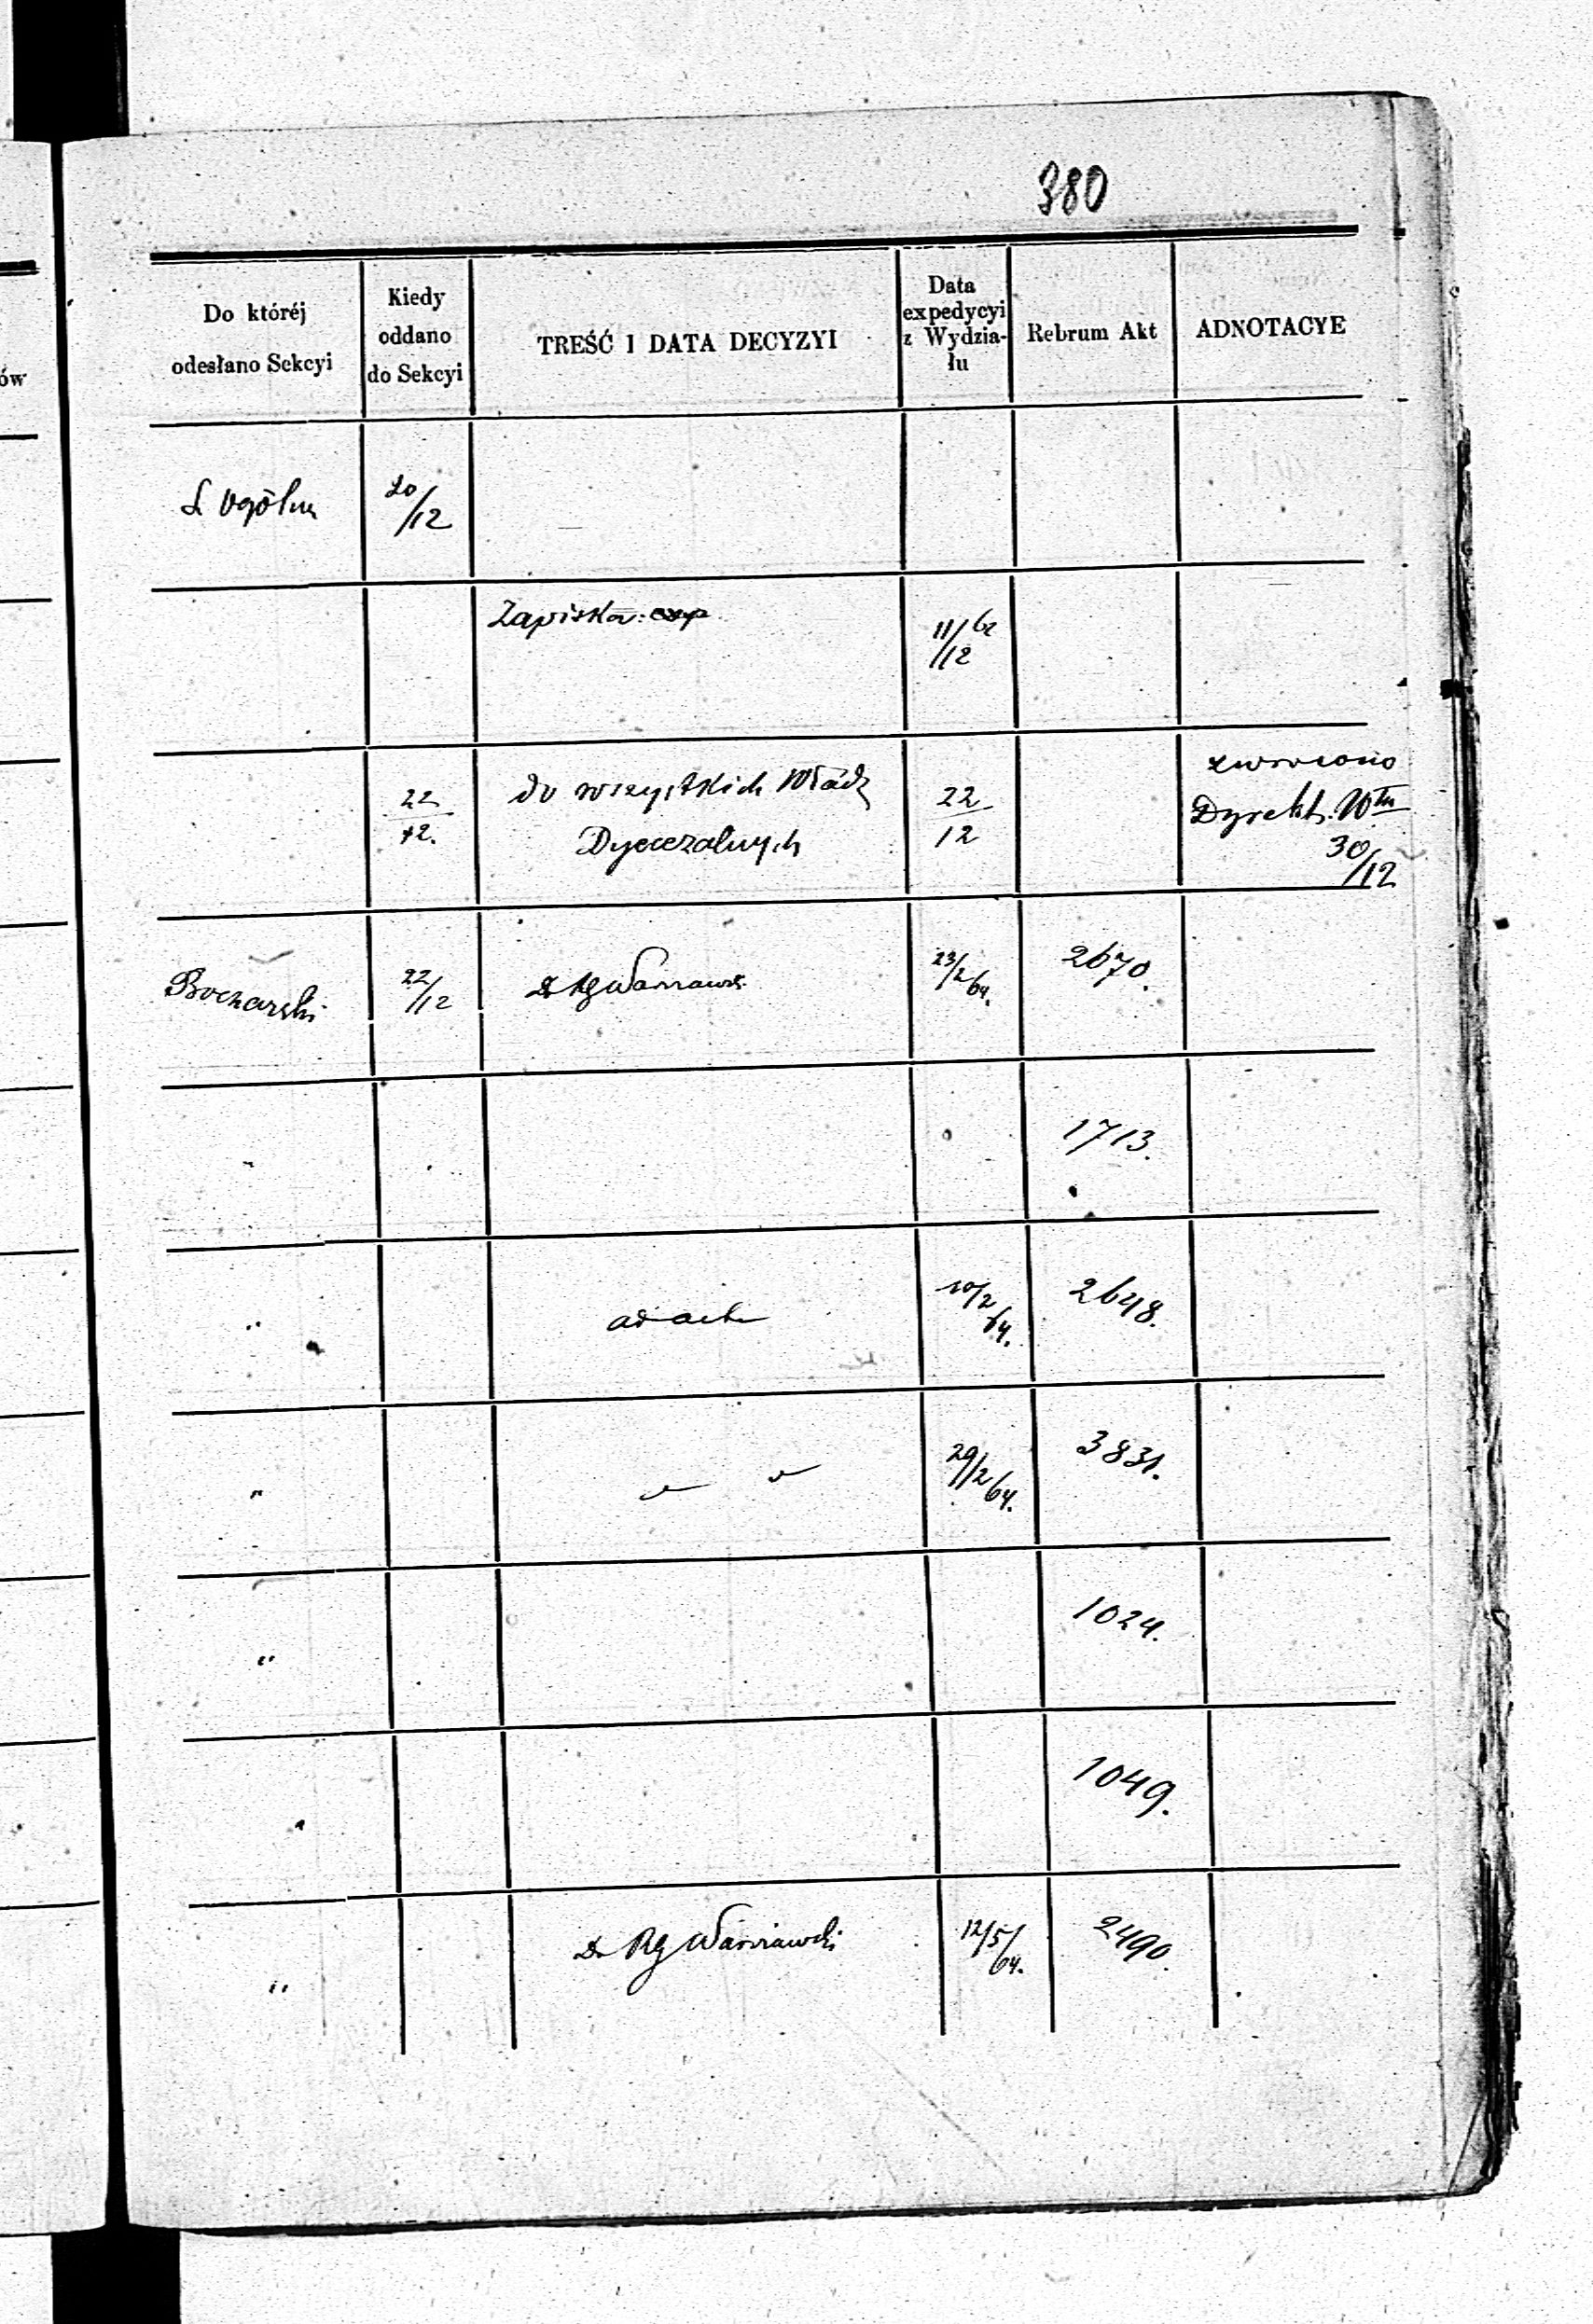 380
ów
Do któréj
odesłano Sekcyi
Kiedy
oddano
do Sekcyi
TREŚĆ I DATA DECYZYI
Data
expedycyi
z Wydzia-
łu
Rebrum Akt
ADNOTACYE
S. Ogólna
20/12
Zapiska
11/12 62
22/12.
do wszystkich Władz
Dyecezalnych
22/12
zwrócono
Dyrekt.
30/12
Boczarski
22/12
Do RG Warszaws.
23/2 64.
2670.
"
1713.
"
ad acta
10/2 64.
2648.
"
" "
29/2 64.
3831.
"
1024.
"
1049.
"
Do RG Warszawski
12/5 64.
2490.